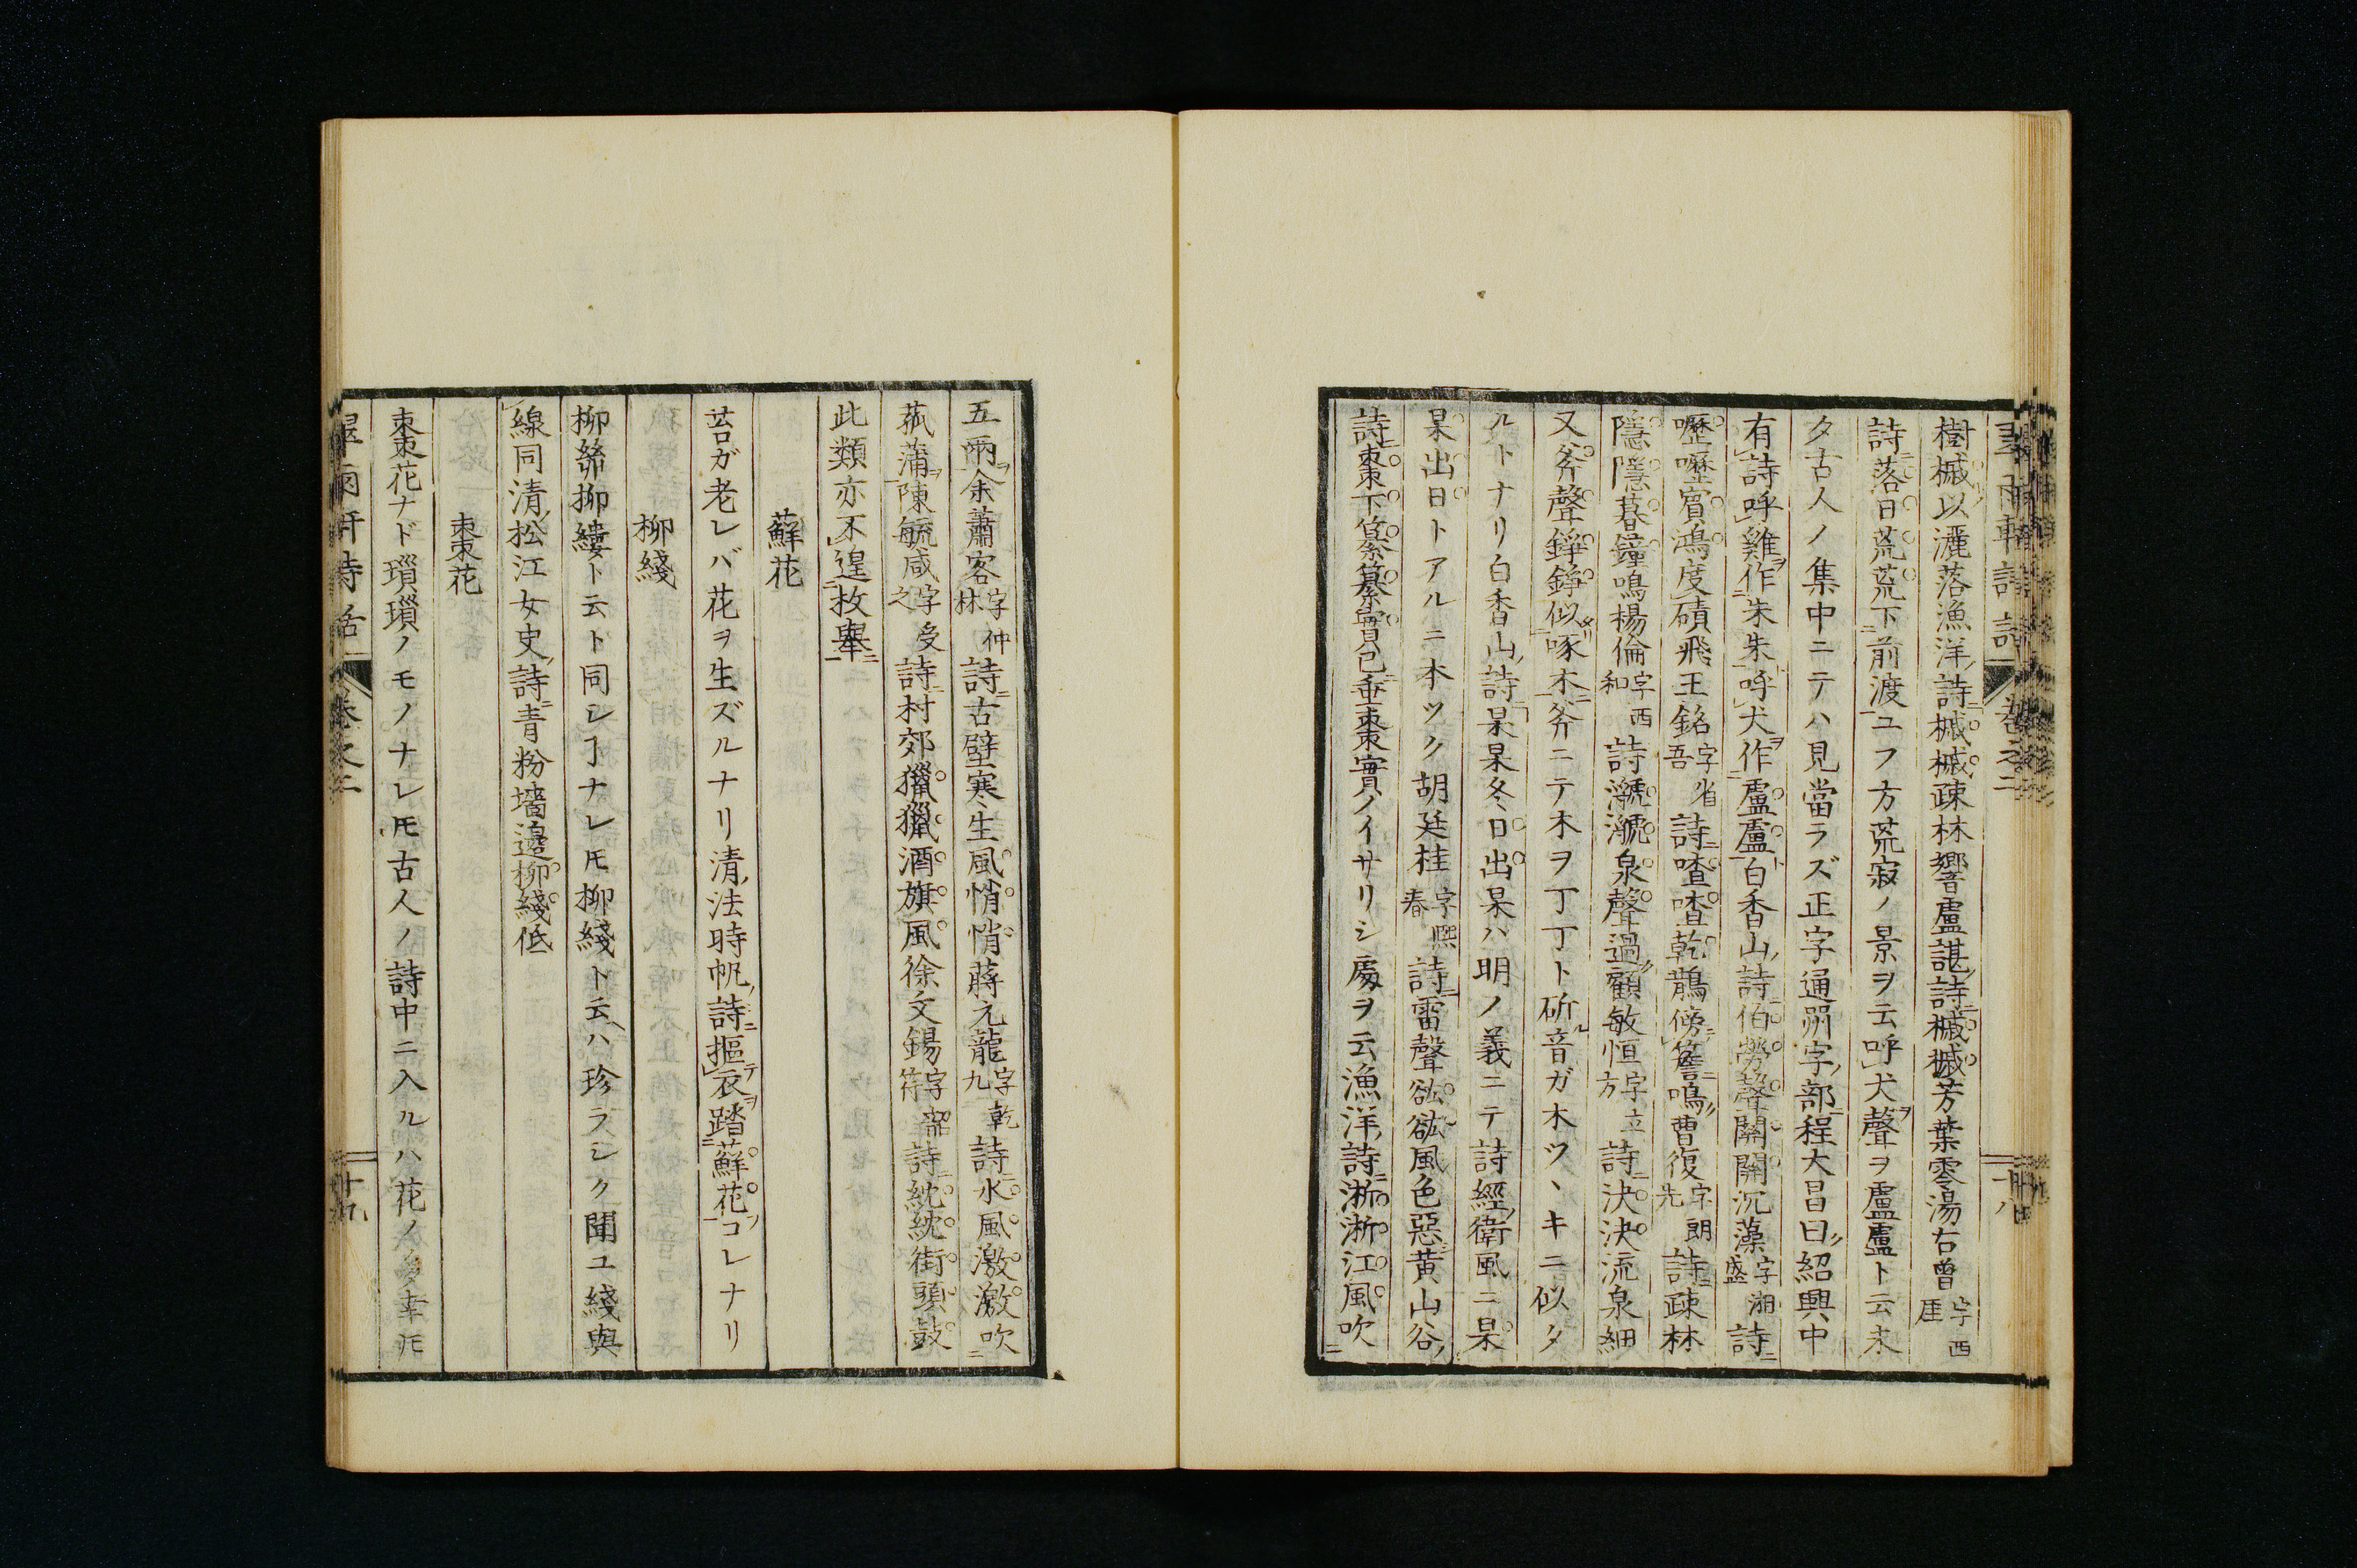 樹槭以灑落漁洋ノ詩ニ槭槭疎林響盧諶ノ詩ニ槭槭芳葉零湯右曽字西厓
詩ニ落日荒荒下前渡ユフ方荒寂ノ景ヲ云呼犬聲ヲ盧盧ト云未
タ古人ノ集中ニテハ見當ラズ正字通ノ字ノ部ニ程大昌曰紹興中
有詩呼雞ヲ作朱朱呼犬ヲ作盧盧ト白香山ノ詩ニ伯勞聲關關沉藻字湘盛詩ニ
嚦嚦賓鴻度磧飛王銘字省吾詩ニ喳喳乾鵲傍簷鳴曹復字朗先詩ニ疎林
隱隱暮鐘鳴楊倫字西和詩ニ㶁㶁泉聲過顧敏恒字立方詩ニ決決流泉細
又斧聲錚錚似啄木斧ニテ木ヲ丁丁ト斫ル音ガ木ツヽキニ似タ
ルトナリ白香山ノ詩ニ杲杲冬日出杲ハ明ノ義ニテ詩經ノ衛風ニ杲
杲出日トアルニ本ツク胡廷桂字熙春詩ニ雷聲㳒㳒風色惡黄山谷ノ
詩ニ棗下纂纂實已垂棗實ノイサリシ處ヲ云漁洋ノ詩ニ淅淅江風吹
翠雨軒詩話 巻之二 十八
五兩余蕭客字仲林詩ニ古壁寒生風悄悄蔣元龍字乾九詩ニ水風激激吹
菰蒲陳毓咸字受之詩ニ村郊獵獵酒旗風徐文錫字符詩ニ紞紞街頭鼓
此類亦不遑枚舉
蘚花
苔ガ老レバ花ヲ生ズルナリ清ノ法時帆ノ詩ニ摳衣踏蘚花コレナリ
柳綫
柳絲柳縷ト云ト同シヿナレ𪜈柳綫ト云ハ珍ラシク聞ユ綫與
線同清ノ松江女史ノ詩ニ青粉墻邉柳綫低
棗花
棗花ナド瑣瑣ノモノナレ𪜈古人ノ詩中ニ入ルハ花ノ多幸𪜈
翠雨軒詩話 巻之二 十九